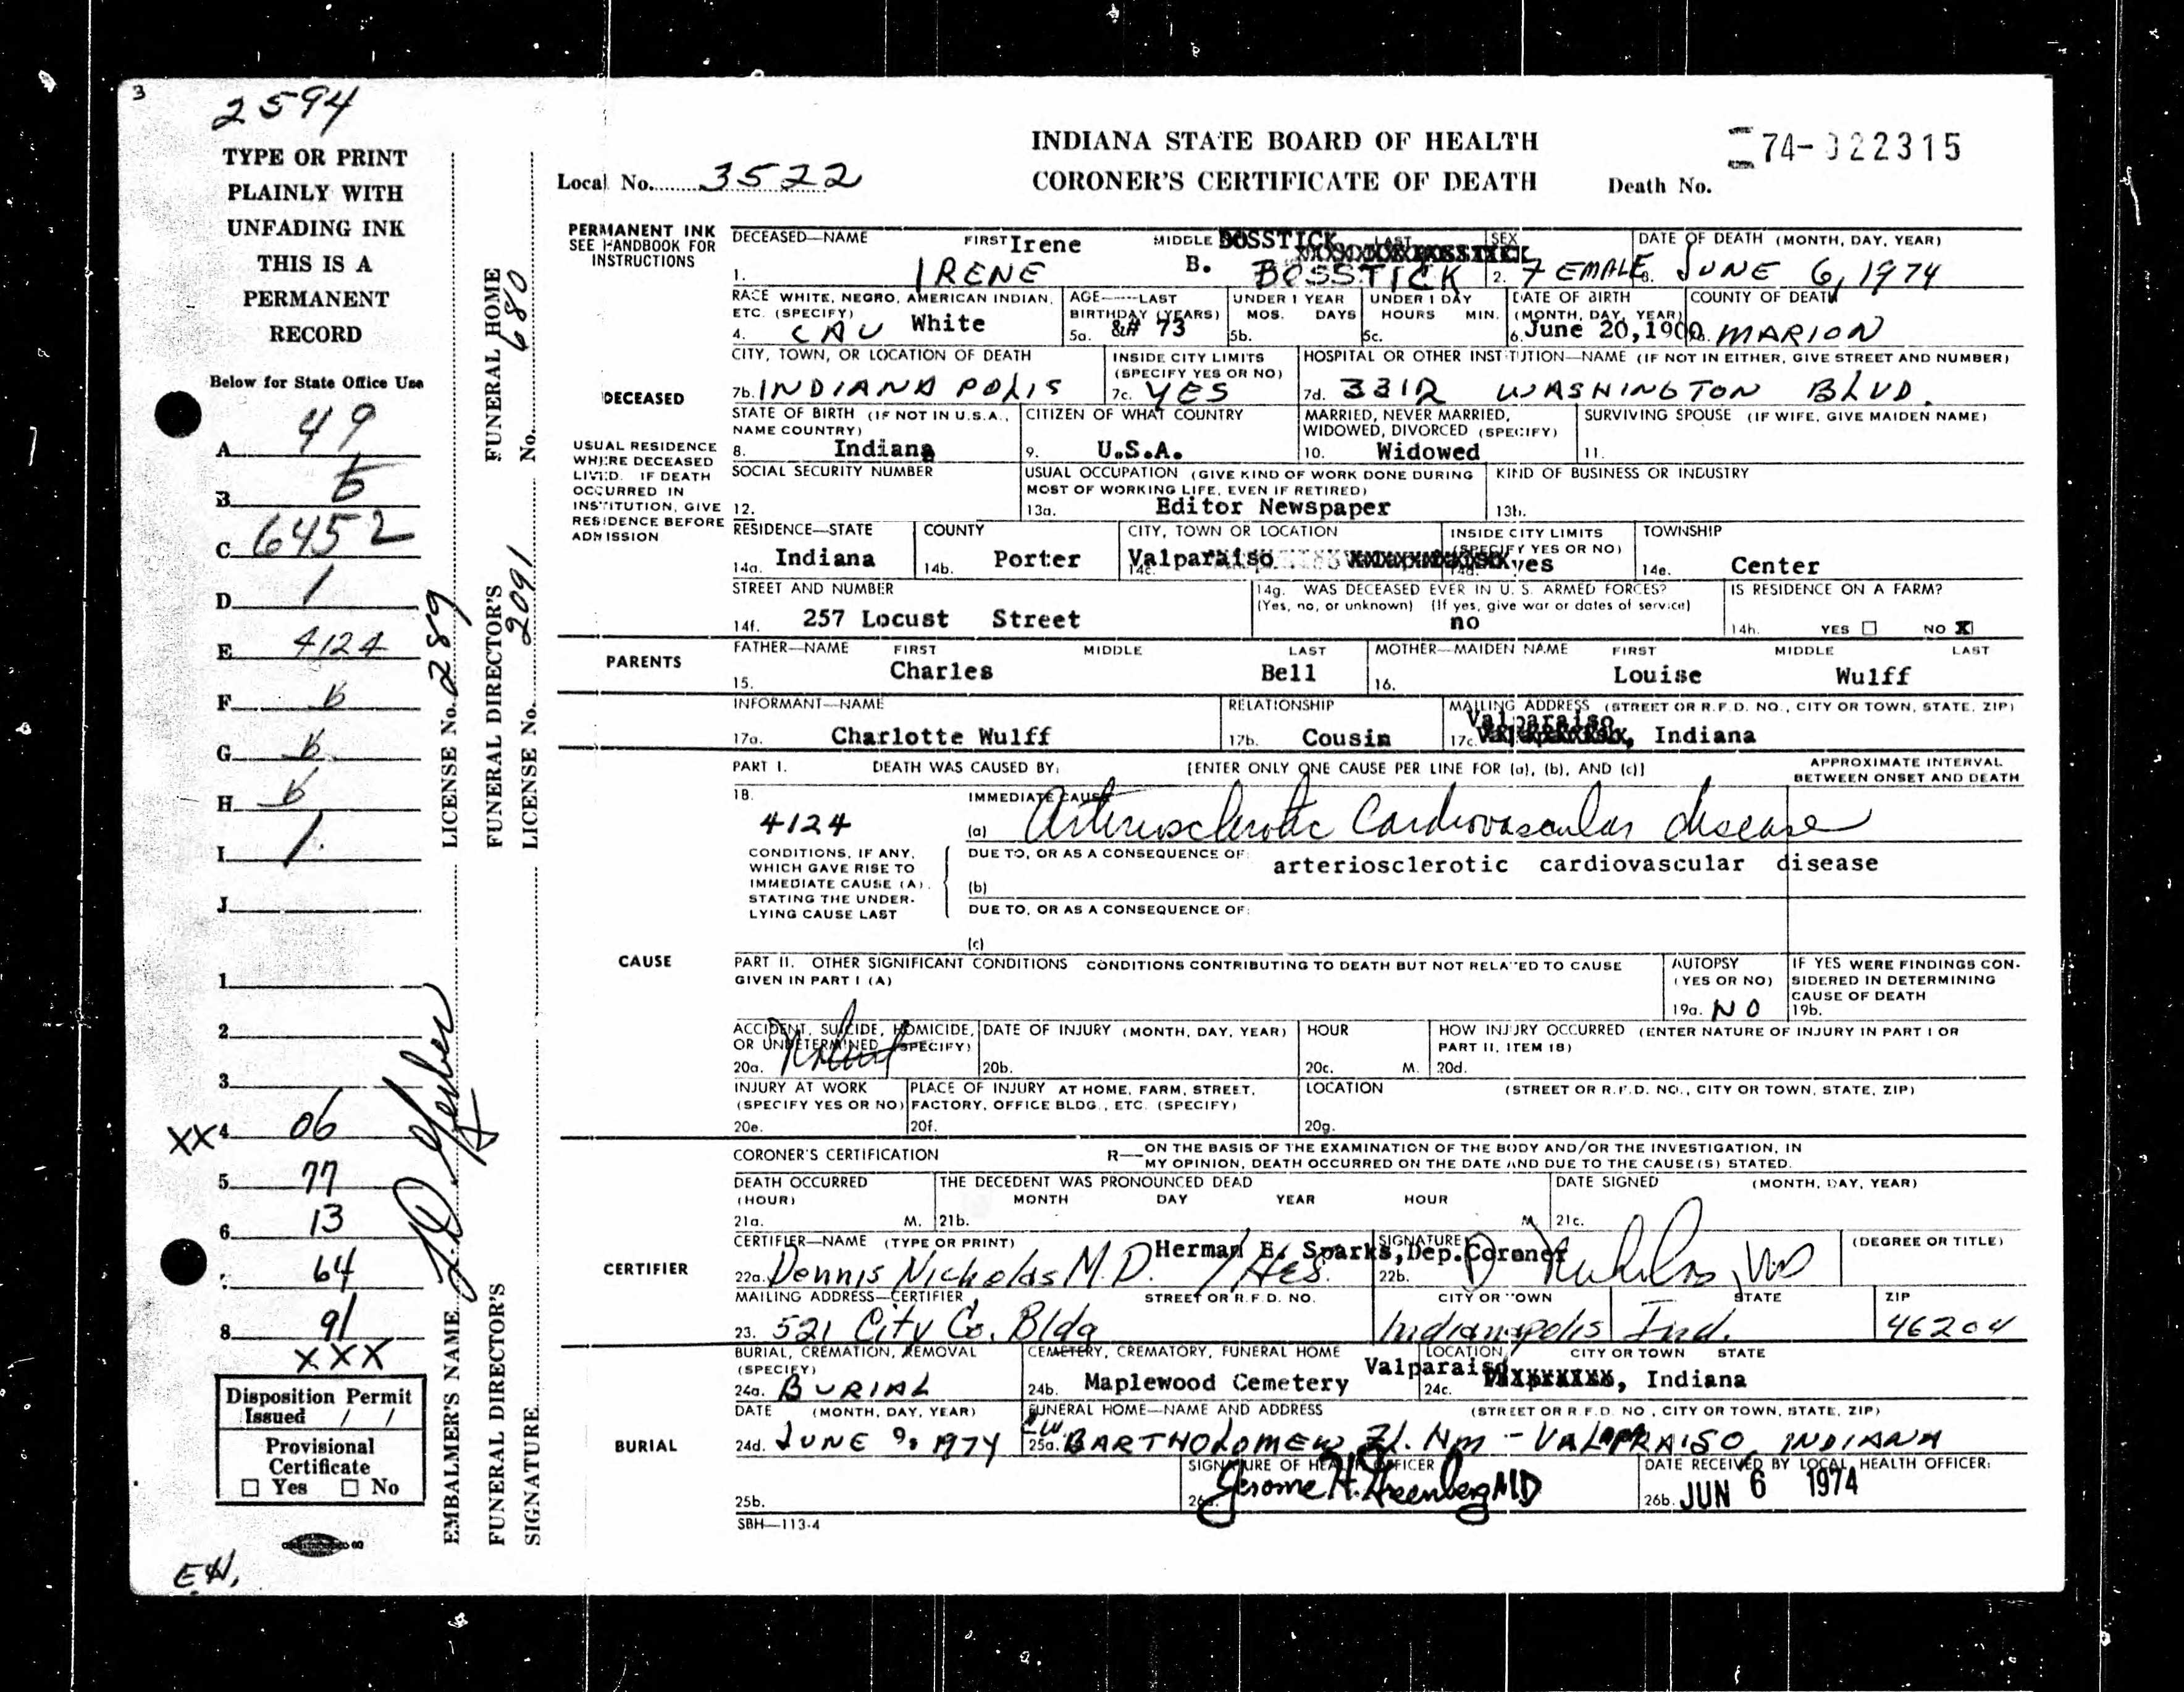 3
2594
TYPE OR PRINT
PLAINLY WITH
UNFADING INK
THIS IS A
PERMANENT
RECORD
Below for State Office Use
A 49
B b
C 6452
D 1
E 4124
F b
G b
H b
I 1.
J
1
2
3
XX 4 06
5 77
6 13
64
8 91
XXX
Disposition Permit
Issued / /
Provisional
Certificate
☐ Yes ☐ No
E.H.
EMBALMER'S NAME LICENSE No. 289
FUNERAL DIRECTOR'S FUNERAL DIRECTOR'S FUNERAL HOME
SIGNATURE LICENSE No. 2091 No. 680
INDIANA STATE BOARD OF HEALTH
CORONER'S CERTIFICATE OF DEATH
Local No. 3522
Death No. 74-022315
PERMANENT INK
SEE HANDBOOK FOR
INSTRUCTIONS
DECEASED
USUAL RESIDENCE
WHERE DECEASED
LIVED. IF DEATH
OCCURRED IN
INSTITUTION, GIVE
RESIDENCE BEFORE
ADMISSION
DECEASED—NAME FIRST Irene MIDDLE BOSSTICK LAST SEX DATE OF DEATH (MONTH, DAY, YEAR)
1. IRENE B. BOSSTICK 2. FEMALE 3. JUNE 6, 1974
RACE WHITE, NEGRO, AMERICAN INDIAN, AGE—LAST UNDER 1 YEAR UNDER 1 DAY DATE OF BIRTH COUNTY OF DEATH
ETC. (SPECIFY) BIRTHDAY (YEARS) MOS. DAYS HOURS MIN. (MONTH, DAY, YEAR)
4. CAU White 5a. 73 5b. 5c. 6. June 20, 1900 MARION
CITY, TOWN, OR LOCATION OF DEATH INSIDE CITY LIMITS HOSPITAL OR OTHER INSTITUTION—NAME (IF NOT IN EITHER, GIVE STREET AND NUMBER)
(SPECIFY YES OR NO)
7b. INDIANAPOLIS 7c. YES 7d. 3312 WASHINGTON BLVD.
STATE OF BIRTH (IF NOT IN U.S.A., CITIZEN OF WHAT COUNTRY MARRIED, NEVER MARRIED, SURVIVING SPOUSE (IF WIFE, GIVE MAIDEN NAME)
NAME COUNTRY) WIDOWED, DIVORCED (SPECIFY)
8. Indiana 9. U.S.A. 10. Widowed 11.
SOCIAL SECURITY NUMBER USUAL OCCUPATION (GIVE KIND OF WORK DONE DURING KIND OF BUSINESS OR INDUSTRY
MOST OF WORKING LIFE, EVEN IF RETIRED)
12. 13a. Editor Newspaper 13b.
RESIDENCE—STATE COUNTY CITY, TOWN OR LOCATION INSIDE CITY LIMITS TOWNSHIP
(SPECIFY YES OR NO)
14a. Indiana 14b. Porter 14c. Valparaiso 14d. yes 14e. Center
STREET AND NUMBER 14g. WAS DECEASED EVER IN U. S. ARMED FORCES? IS RESIDENCE ON A FARM?
(Yes, no, or unknown) (If yes, give war or dates of service)
14f. 257 Locust Street no 14h. YES ☐ NO X
PARENTS
FATHER—NAME FIRST MIDDLE LAST MOTHER—MAIDEN NAME FIRST MIDDLE LAST
15. Charles Bell 16. Louise Wulff
INFORMANT—NAME RELATIONSHIP MAILING ADDRESS (STREET OR R.F.D. NO., CITY OR TOWN, STATE, ZIP)
17a. Charlotte Wulff 17b. Cousin 17c. Valparaiso, Indiana
PART I. DEATH WAS CAUSED BY: [ENTER ONLY ONE CAUSE PER LINE FOR (a), (b), AND (c)] APPROXIMATE INTERVAL
BETWEEN ONSET AND DEATH
18. IMMEDIATE CAUSE
4124 (a) Arteriosclerotic Cardiovascular disease
CONDITIONS, IF ANY,
WHICH GAVE RISE TO
IMMEDIATE CAUSE (A),
STATING THE UNDER-
LYING CAUSE LAST
DUE TO, OR AS A CONSEQUENCE OF: arteriosclerotic cardiovascular disease
(b)
DUE TO, OR AS A CONSEQUENCE OF:
(c)
CAUSE
PART II. OTHER SIGNIFICANT CONDITIONS CONDITIONS CONTRIBUTING TO DEATH BUT NOT RELATED TO CAUSE AUTOPSY IF YES WERE FINDINGS CON-
GIVEN IN PART I (A) (YES OR NO) SIDERED IN DETERMINING
CAUSE OF DEATH
19a. NO 19b.
ACCIDENT, SUICIDE, HOMICIDE, DATE OF INJURY (MONTH, DAY, YEAR) HOUR HOW INJURY OCCURRED (ENTER NATURE OF INJURY IN PART I OR
OR UNDETERMINED (SPECIFY) PART II, ITEM 18)
20a. Natural 20b. 20c. M. 20d.
INJURY AT WORK PLACE OF INJURY AT HOME, FARM, STREET, LOCATION (STREET OR R.F.D. NO., CITY OR TOWN, STATE, ZIP)
(SPECIFY YES OR NO) FACTORY, OFFICE BLDG., ETC. (SPECIFY)
20e. 20f. 20g.
CORONER'S CERTIFICATION R— ON THE BASIS OF THE EXAMINATION OF THE BODY AND/OR THE INVESTIGATION, IN
MY OPINION, DEATH OCCURRED ON THE DATE AND DUE TO THE CAUSE(S) STATED.
DEATH OCCURRED THE DECEDENT WAS PRONOUNCED DEAD DATE SIGNED (MONTH, DAY, YEAR)
(HOUR) MONTH DAY YEAR HOUR
21a. M. 21b. M 21c.
CERTIFIER
CERTIFIER—NAME (TYPE OR PRINT) Herman E. Sparks, Dep. Coroner SIGNATURE (DEGREE OR TITLE)
22a. Dennis Nicholas M.D. / HES. 22b. D Nicholas, MD
MAILING ADDRESS—CERTIFIER STREET OR R.F.D. NO. CITY OR TOWN STATE ZIP
23. 521 City Co. Bldg Indianapolis Ind. 46204
BURIAL, CREMATION, REMOVAL CEMETERY, CREMATORY, FUNERAL HOME LOCATION CITY OR TOWN STATE
(SPECIFY)
24a. BURIAL 24b. Maplewood Cemetery 24c. Valparaiso, Indiana
DATE (MONTH, DAY, YEAR) FUNERAL HOME—NAME AND ADDRESS (STREET OR R.F.D. NO., CITY OR TOWN, STATE, ZIP)
BURIAL
24d. JUNE 9, 1974 25a. BARTHOLOMEW Fl. Hm - VALAPRAISO, INDIANA
SIGNATURE OF HEALTH OFFICER DATE RECEIVED BY LOCAL HEALTH OFFICER:
25b. 26a. Jerome H. Greenberg MD 26b. JUN 6 1974
SBH—113-4